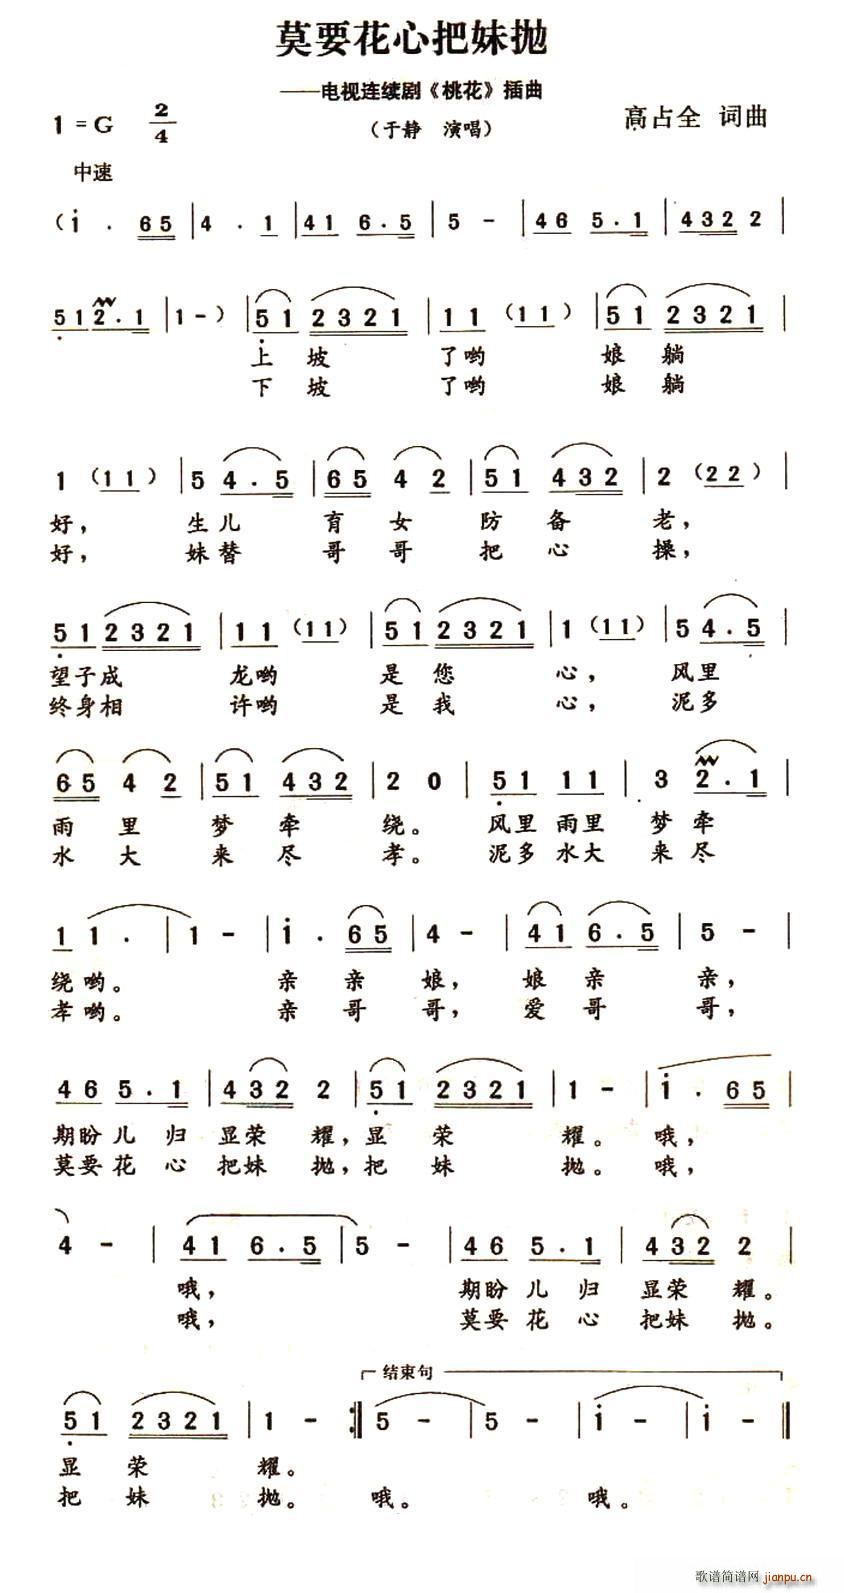 莫要花心把妹抛
——电视连续剧《桃花》插曲
1=G 2/4 (于静 演唱) 高占全 词曲
中速
(i · 65 | 4 · 1 | 41 6·5 | 5 - | 46 5·1 | 432 2 |
51 2·1 | 1 - ) | 51 2321 | 11 (11) | 51 2321 |
上坡 了哟 娘躺
下坡 了哟 娘躺
1 (11) | 5 4·5 | 65 4 2 | 51 432 | 2 (22) |
好, 生儿 育女 防备 老,
好, 妹替 哥哥 把心 操,
51 2321 | 11 (11) | 51 2321 | 1 (11) | 5 4·5 |
望子成 龙哟 是您 心, 风里
终身相 许哟 是我 心, 泥多
65 4 2 | 51 432 | 2 0 | 51 11 | 3 2·1 |
雨里 梦牵 绕。 风里雨里 梦牵
水大 来尽 孝。 泥多水大 来尽
1 1· | 1 - | i · 65 | 4 - | 41 6·5 | 5 - |
绕哟。 亲亲 娘, 娘亲 亲,
孝哟。 亲哥 哥, 爱哥 哥,
46 5·1 | 432 2 | 51 2321 | 1 - | i · 65 |
期盼儿归 显荣耀,显荣 耀。 哦,
莫要花心 把妹抛,把妹 抛。 哦,
4 - | 41 6·5 | 5 - | 46 5·1 | 432 2 |
哦, 期盼儿归 显荣耀。
哦, 莫要花心 把妹抛。
结束句
51 2321 | 1 - :| 5 - | 5 - | i - | i - ||
显荣 耀。
把妹 抛。 哦。 哦。
歌谱简谱网 jianpu.cn